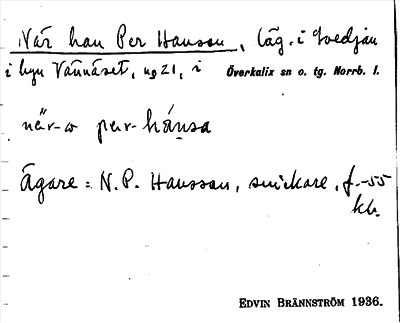 När han Per Hansson, läg. i Svedjan
i byn Vännäset, nº 21, i Överkalix sn o. tg. Norrb. l.
när-o per-hánsa
Ägare: N. P. Hansson, snickare, f.-55
kh.
EDVIN BRÄNNSTRÖM 1936.